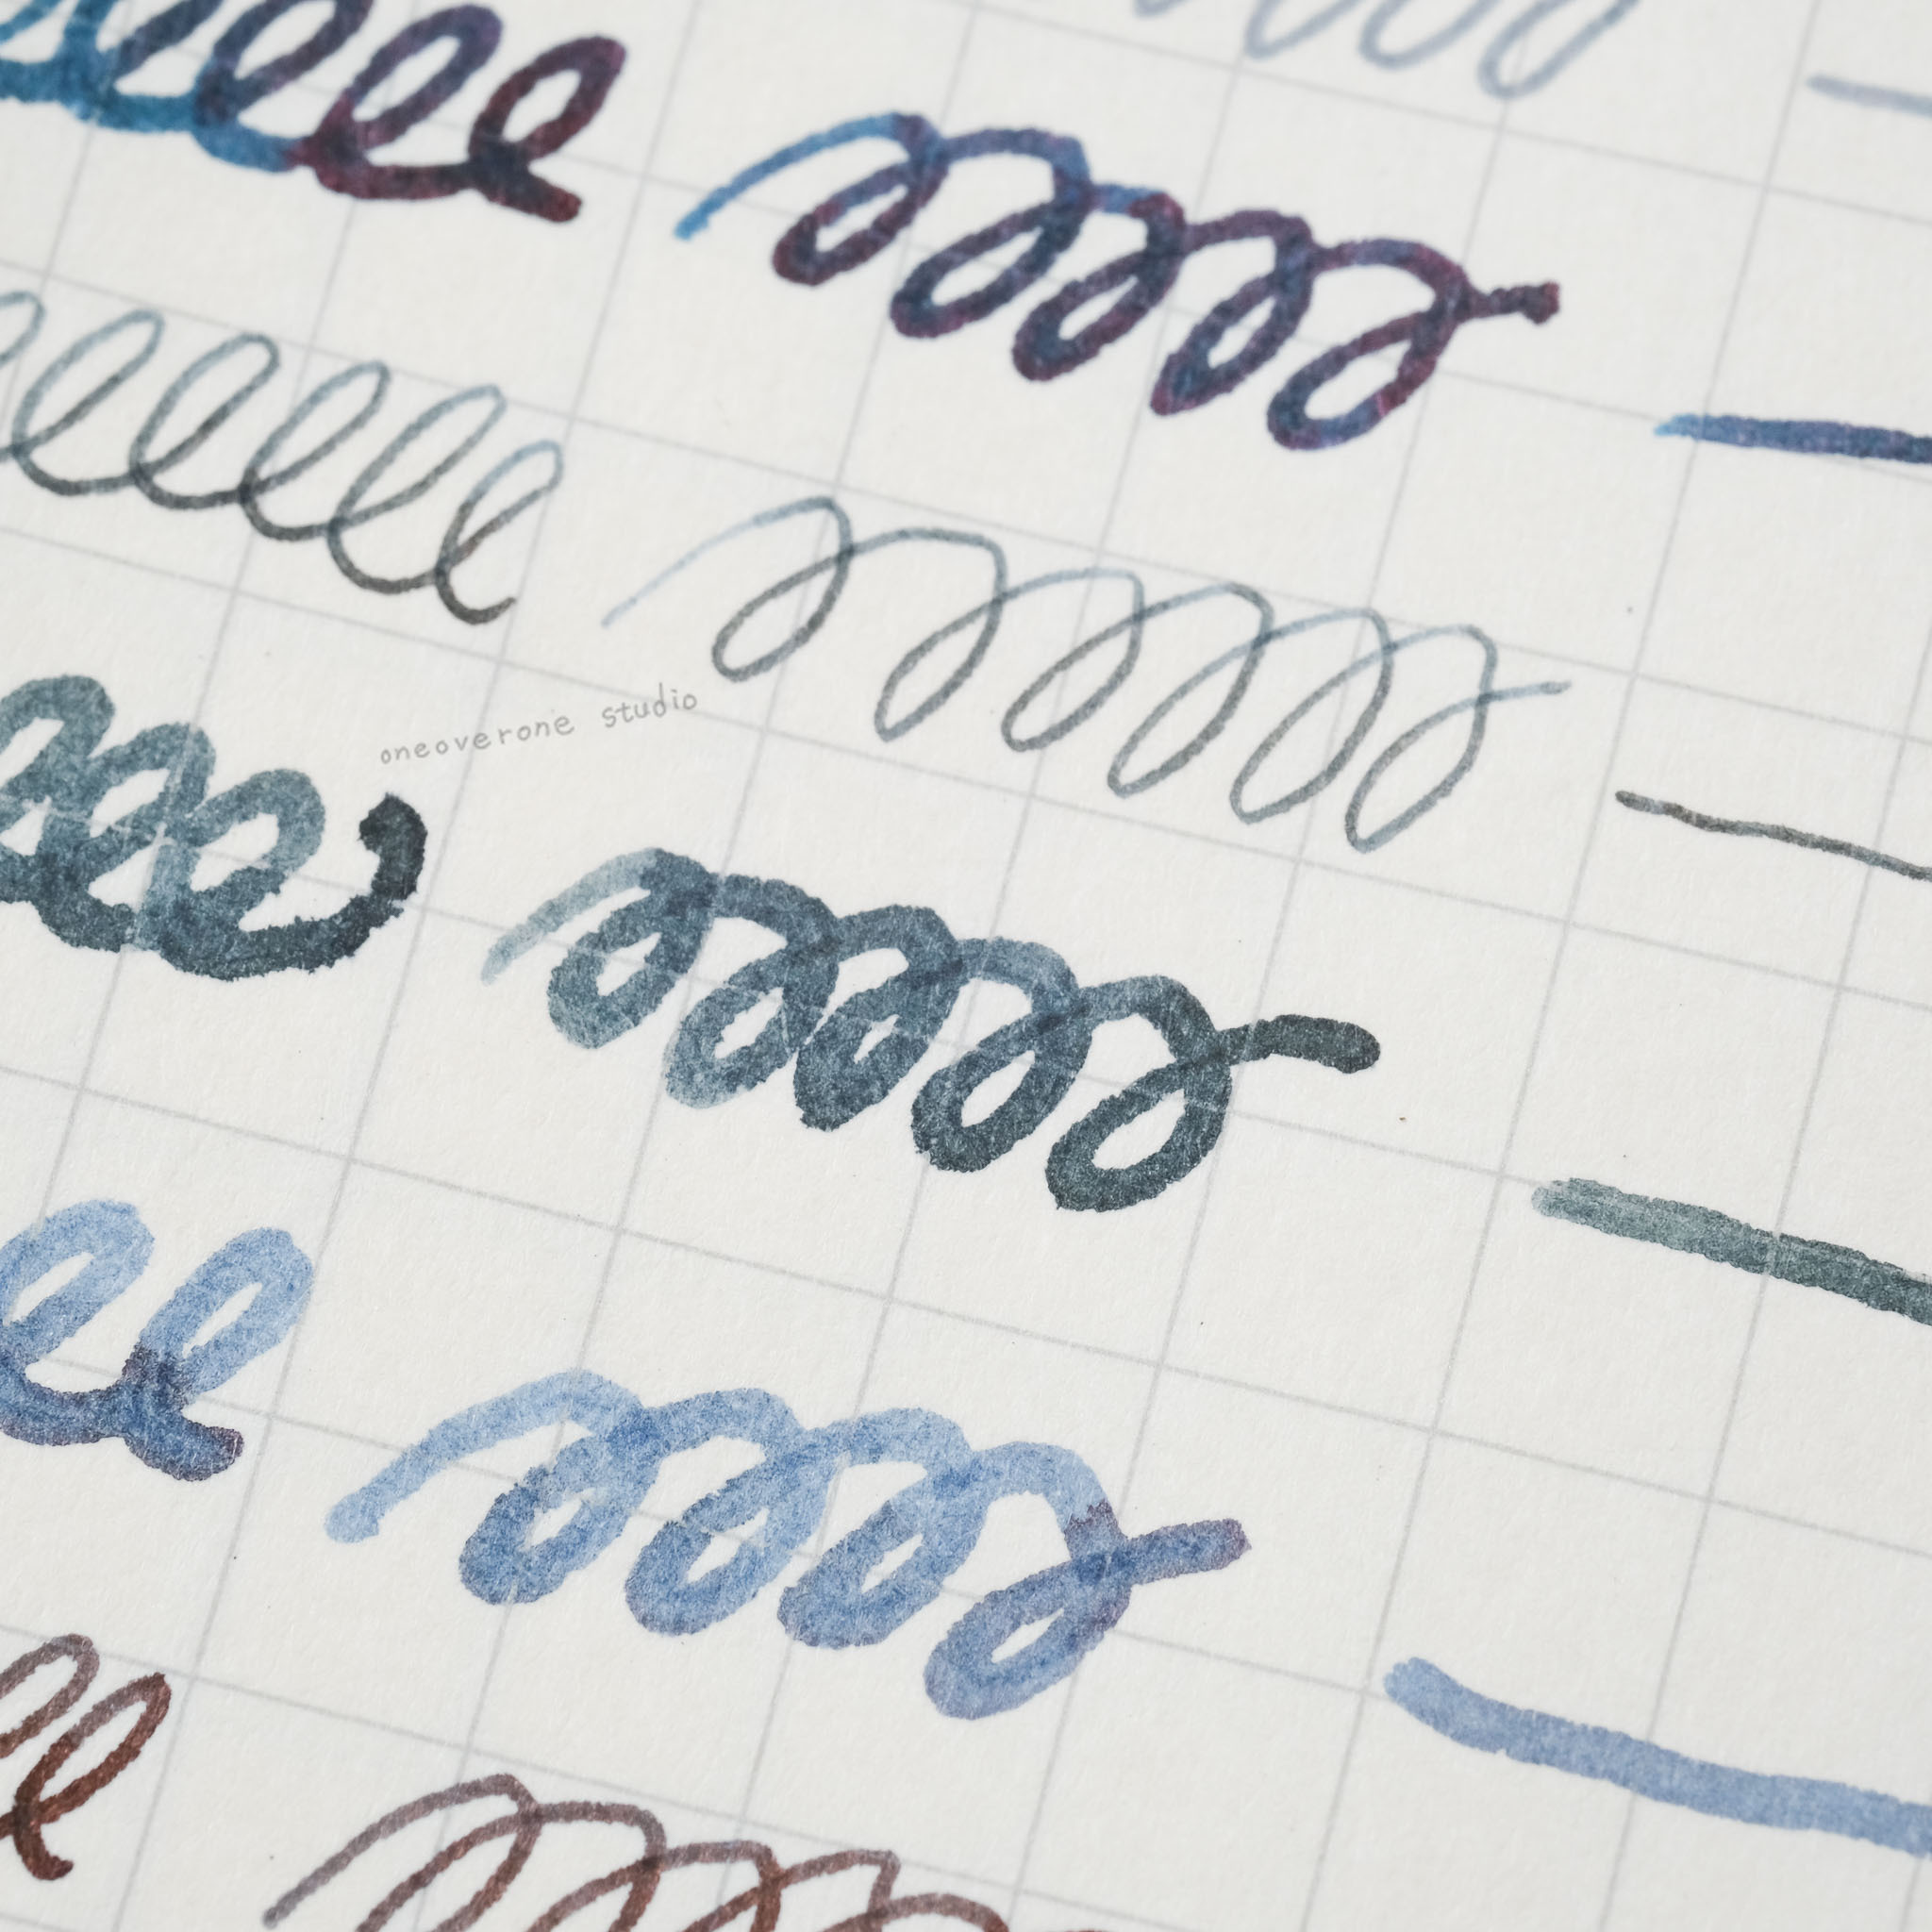 oneoverone studio